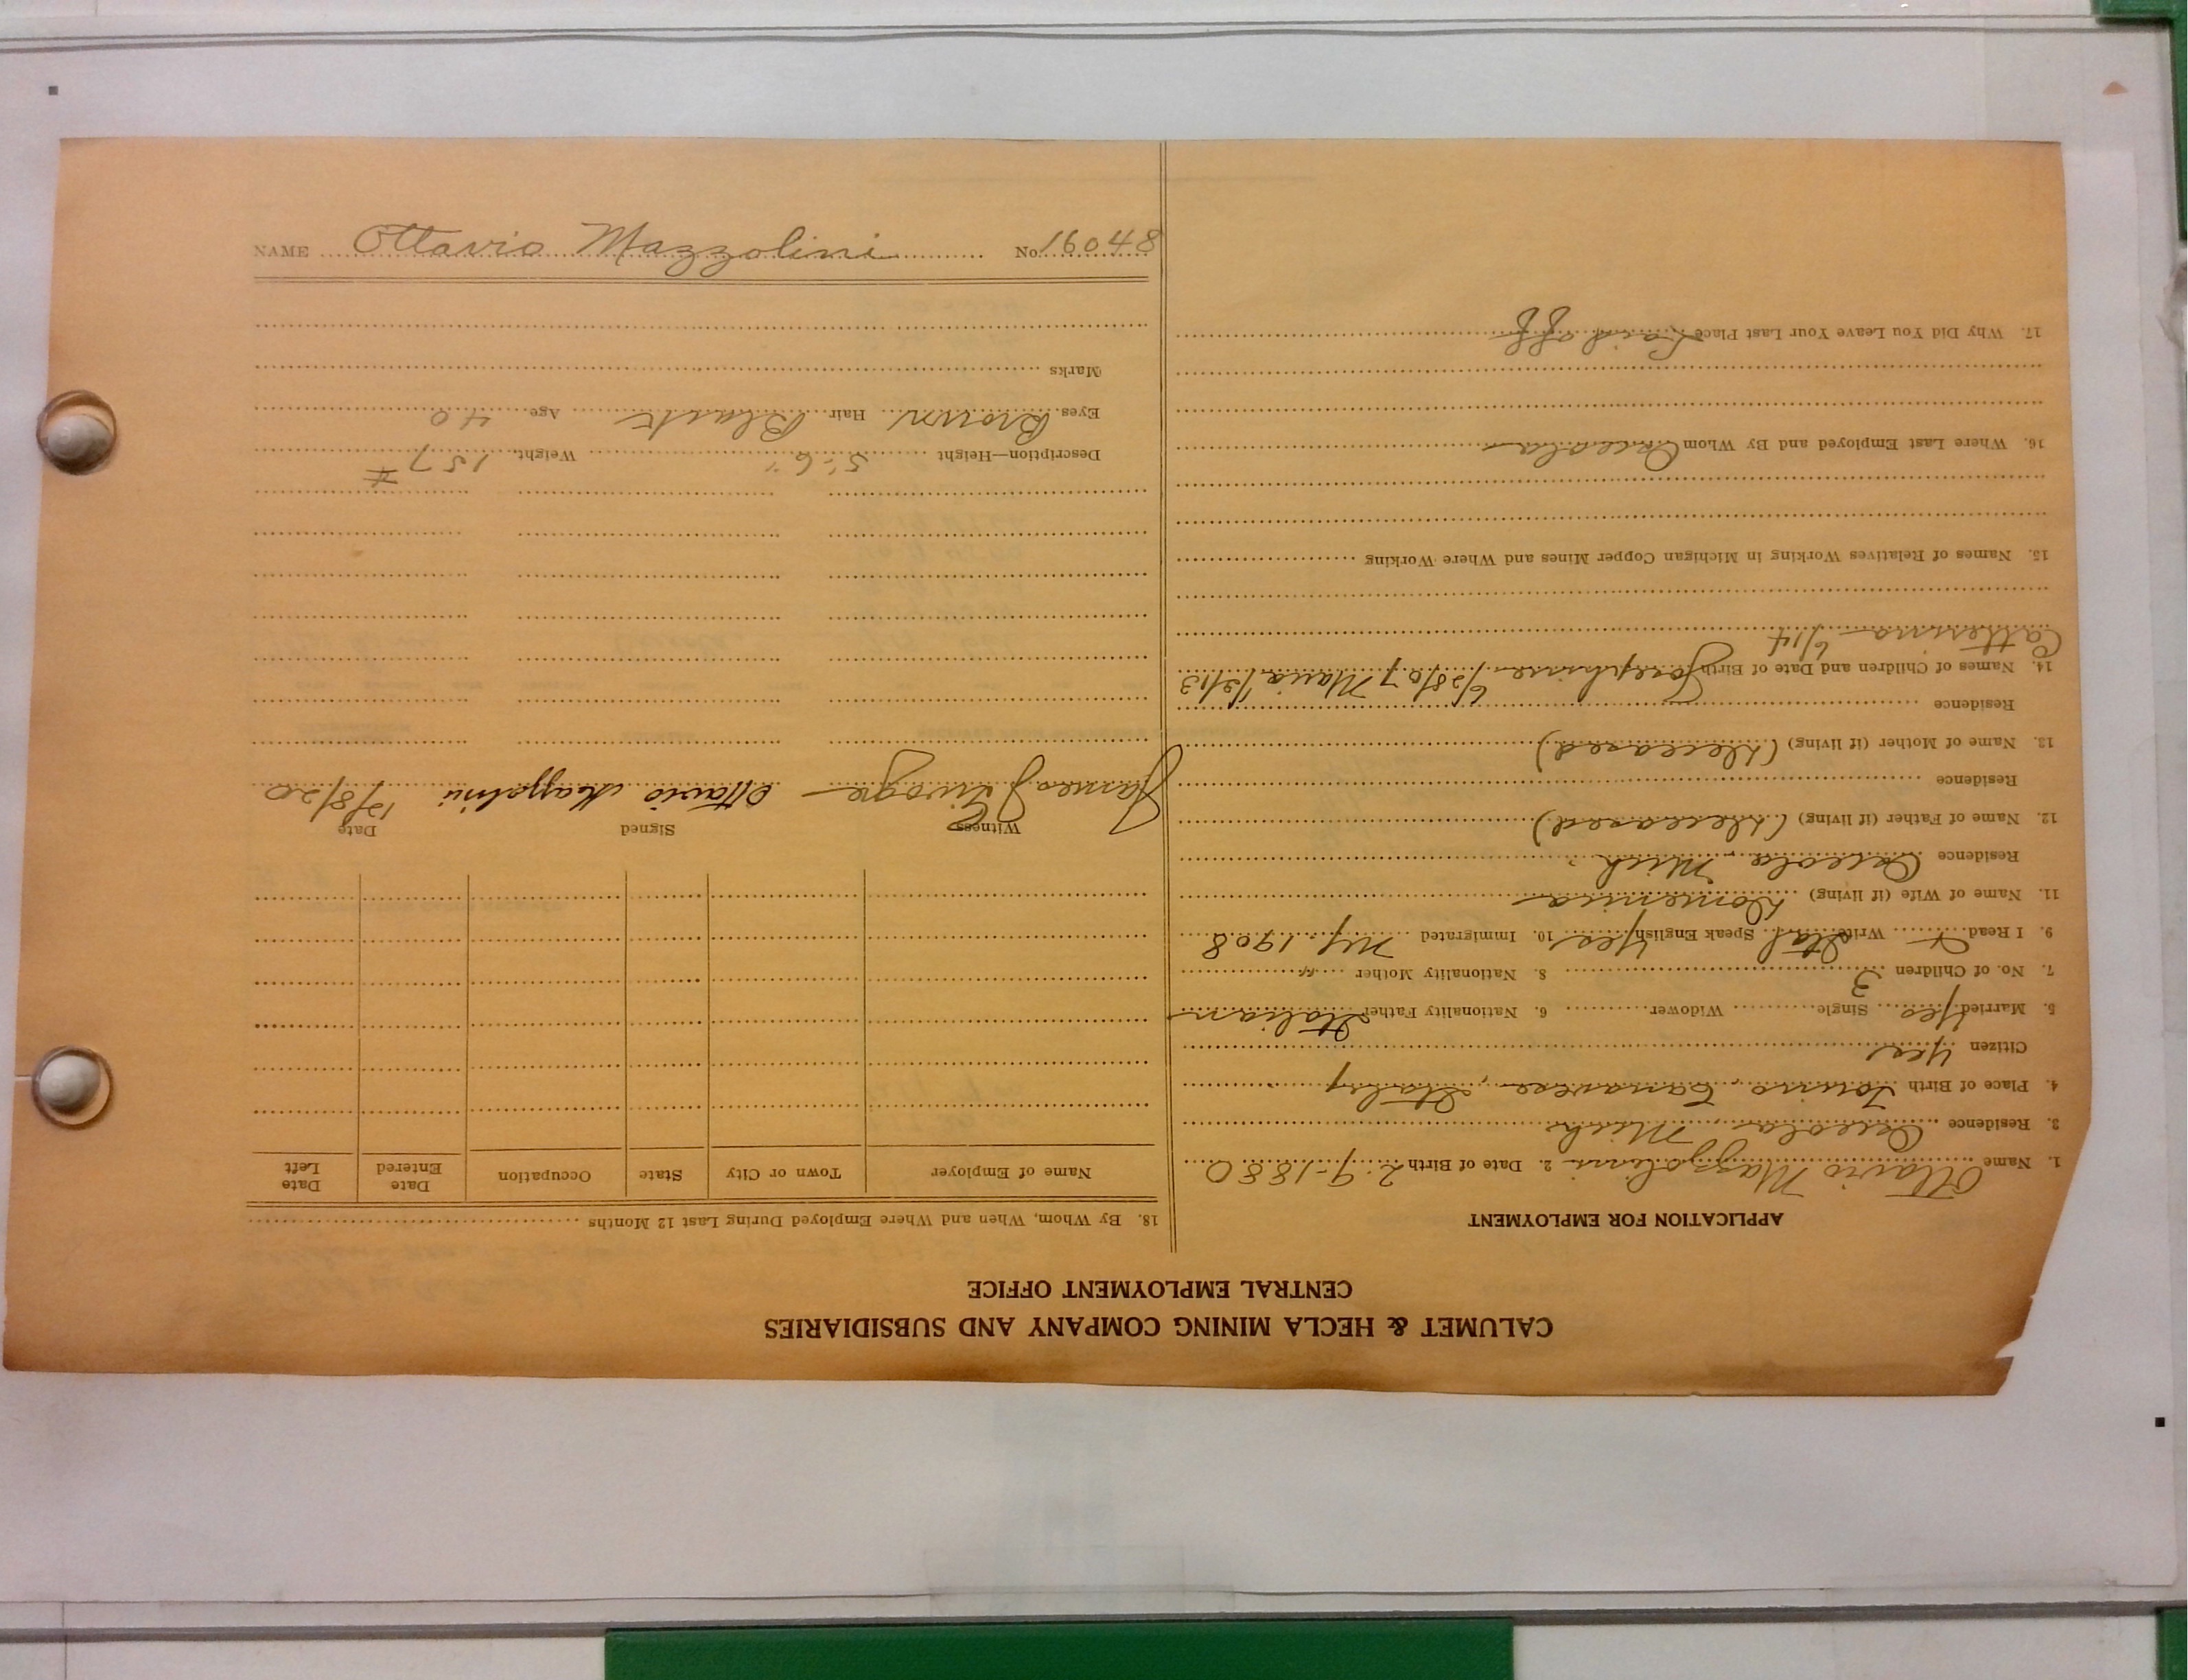 CALUMET & HECLA MINING COMPANY AND SUBSIDIARIES
CENTRAL EMPLOYMENT OFFICE
APPLICATION FOR EMPLOYMENT
1. Name Ottavio Mazzolini 2. Date of Birth 2-9-1880
3. Residence Osceola, Mich
4. Place of Birth Torino, Canavese, Italy
Citizen Yes
5. Married Yes Single Widower 6. Nationality Father Italian
7. No. of Children 3 8. Nationality Mother "
9. I Read Write Ital Speak English Yes 10. Immigrated NY. 1908
11. Name of Wife (if living) Domenica
Residence Osceola, Mich.
12. Name of Father (if living) (Deceased)
Residence
13. Name of Mother (if living) (Deceased)
Residence
14. Names of Children and Date of Birth Josephine 6/28/07 Maria 1/2/13
Catterina 6/14
15. Names of Relatives Working in Michigan Copper Mines and Where Working
16. Where Last Employed and By Whom Osceola
17. Why Did You Leave Your Last Place Laid off
18. By Whom, When and Where Employed During Last 12 Months
Name of Employer Town or City State Occupation Date Entered Date Left
Witness Signed Date
James J Ottavio Mazzolini 12/8/20
Description—Height 5'6" Weight 157 #
Eyes Brown Hair Black Age 40
Marks
NAME Ottavio Mazzolini No. 16048